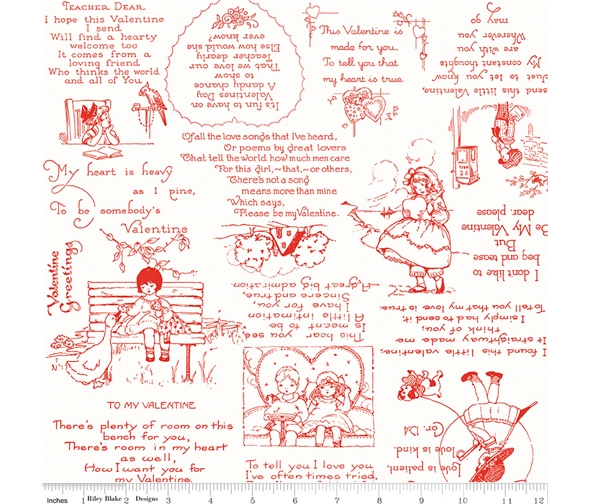 TEACHER DEAR
I hope this Valentine
I send
Will find a hearty
welcome too
It comes from a
loving friend
Who thinks the world
and all of You
It's fun to have on
Valentines Day
A dandy chance
to show
That we love our
Teacher deeply
Else how would she
ever know?
This Valentine is
made for you,
To tell you that
my heart is true.
send this little Valentine
Just to let you know
My constant thoughts
are with you
Wherever you
may go
Of all the love songs that I've heard,
Or poems by great lovers
That tell the world how much men care
For this girl,~that,~or others,
There's not a song
means more than mine
Which says,
Please be my Valentine.
My heart is heavy
as I pine,
To be somebody's
Valentine
I don't like to
beg and tease
But
Be My Valentine
dear, please
Valentine
Greetings
This hear you see
Is meant to be
A little intimation
I have for you,
Sincere and true,
A great big admiration.
I found this little valentine;
It straightway made me
think of you;
I simply had to send it,
To tell you that my love is true.
TO MY VALENTINE
There's plenty of room on this
bench for you,
There's room in my heart
as well,
How I want you for
my Valentine
To tell you I love you
I've often times tried,
Love is patient,
love is kind.
Cor. 13:4
Inches 1 Riley Blake 2 Designs 3 4 5 6 7 8 9 10 11 12